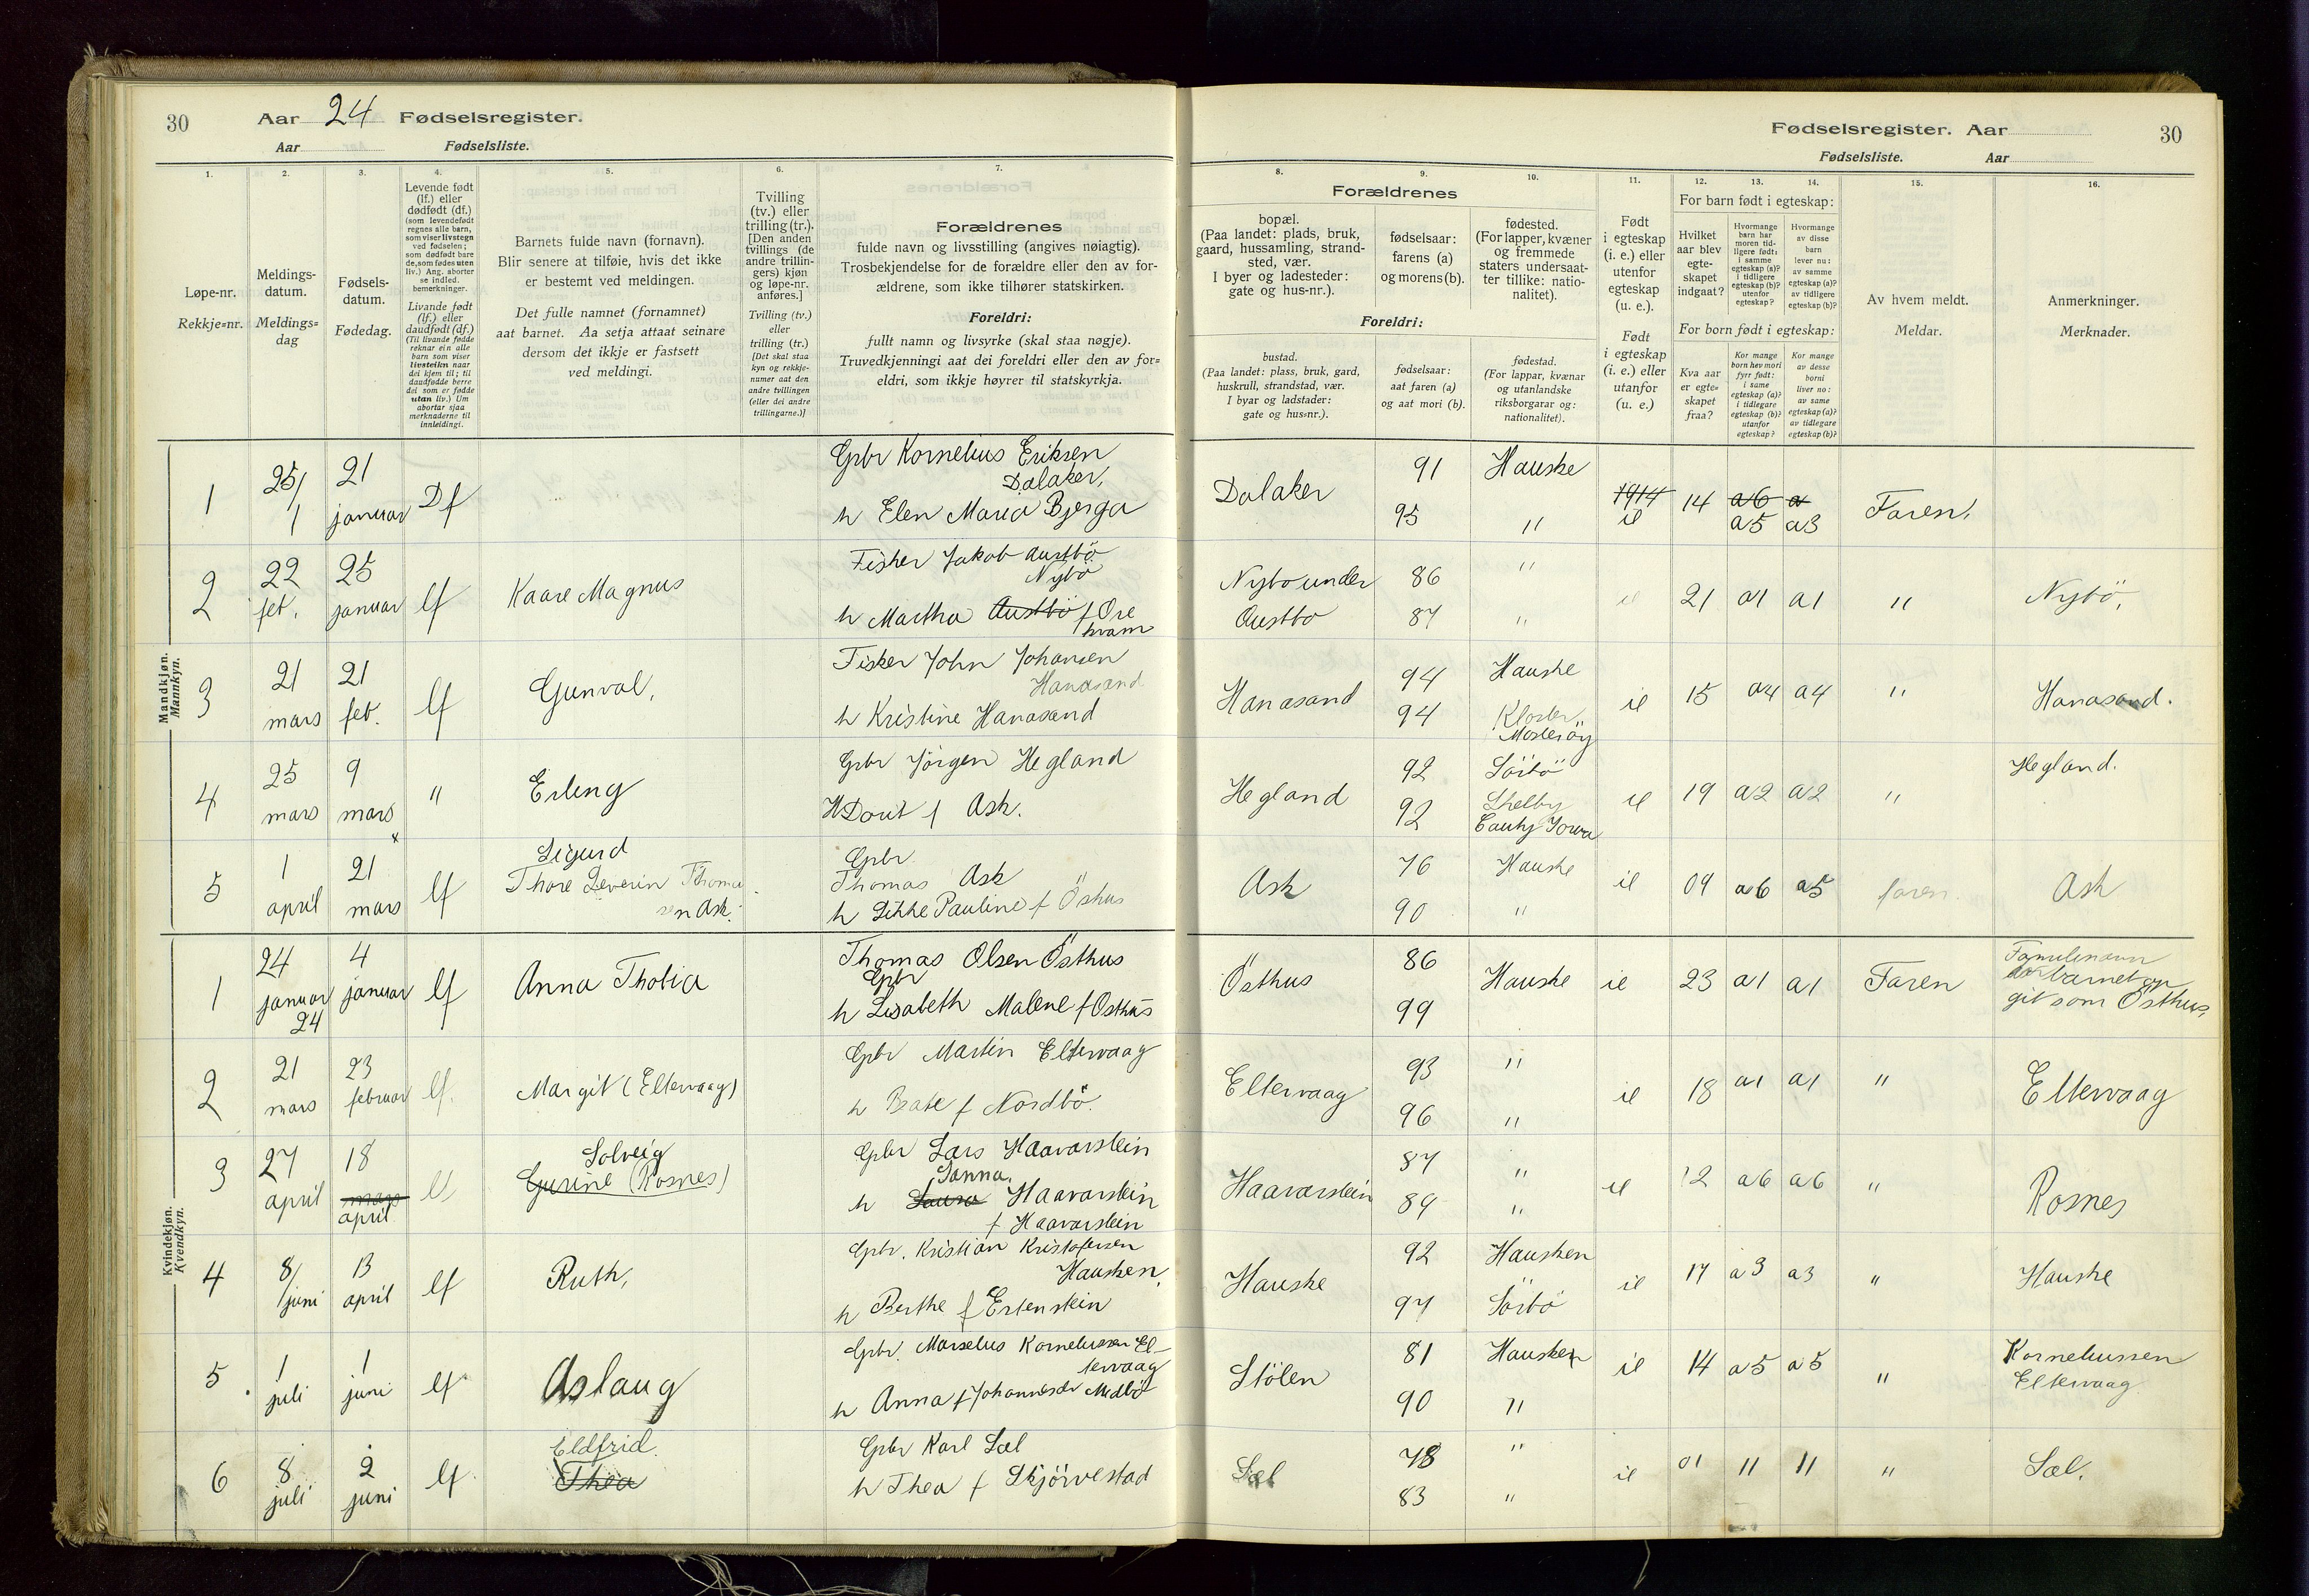 30 Aar 24 Fødselsregister.
Aar Fødselsliste.
Fødselsregister. Aar 30
Fødselsliste. Aar
1. 2. 3. 4. 5. 6. 7.
8. 9. 10. 11. 12. 13. 14. 15. 16.
Løpe-nr.
Rekkje=nr.
Meldings-
datum.
Meldings=
dag
Fødsels-
datum.
Fødedag.
Levende født
(lf.) eller
dødfødt (df.)
(som levendefødt
regnes alle barn,
som viser livstegn
ved fødselen;
som dødfødt bare
de, som fødes uten
liv.) Ang. aborter
se indled.
bemerkninger.
Livande født
(lf.) eller
daudfødt (df.)
(Til livande fødde
reknar ein alle
barn som viser
livsteikn naar
dei kjem til; til
daudfødde berre
dei som er fødde
utan liv.) Um
abortar sjaa
merknaderne til
innleidingi.
Barnets fulde navn (fornavn).
Blir senere at tilføie, hvis det ikke
er bestemt ved meldingen.
Det fulle namnet (fornamnet)
aat barnet. Aa setja attaat seinare
dersom det ikkje er fastsett
ved meldingi.
Tvilling
(tv.) eller
trilling (tr.).
[Den anden
tvillings (de
andre trillin-
gers) kjøn
og løpe-nr.
anføres.]
Tvilling (tv.)
eller
trilling (tr.)
[Det skal staa
kyn og rekkje-
numer aat den
andre tvillingen
(eller dei andre
trillingarne.)]
Forældrenes
fulde navn og livsstilling (angives nøiagtig).
Trosbekjendelse for de forældre eller den av for-
ældrene, som ikke tilhører statskirken.
Foreldri:
fullt namn og livsyrke (skal staa nøgje).
Truvedkjenningi aat dei foreldri eller den av for=
eldri, som ikkje høyrer til statskyrkja.
Forældrenes
bopæl.
(Paa landet: plads, bruk,
gaard, hussamling, strand-
sted, vær.
I byer og ladesteder:
gate og hus-nr.).
fødselsaar:
farens (a)
og morens (b).
fødested.
(For lapper, kvæner
og fremmede
staters undersaat-
ter tillike: natio-
nalitet).
Foreldri:
bustad.
(Paa landet: plass, bruk, gard,
huskrull, strandstad, vær.
I byar og ladstader:
gate og hus=nr.).
fødselsaar:
aat faren (a)
og aat mori (b).
fødestad.
(For lappar, kvænar
og utanlandske
riksborgarar og:
nationalitet).
Født
i egteskap
(i. e.) eller
utenfor
egteskap
(u. e.).
Født
i egteskap
(i. e.) eller
utanfor
(u. e.)
For barn født i egteskap:
Hvilket
aar blev
egte-
skapet
indgaat?
Hvormange
barn har
moren tid-
ligere født:
i samme
egteskap (a)?
i tidligere
egteskap (b)?
utenfor
egteskap?
Hvormange
av disse
barn
lever nu:
av samme
egteskap (a)?
av tidligere
egteskap (b)?
For born født i egteskap:
Kva aar
er egte=
skapet
fraa?
Kor mange
born hev mori
fyrr født:
i same
egteskap (a)?
i tidlegare
egteskap (b)?
utanfor
egteskap?
Kor mange
av desse
borni
liver no:
av same
egteskap (a)?
av tidlegare
egteskap (b)?
Av hvem meldt.
Meldar.
Anmerkninger.
Merknader.
Mandkjøn.
Mannkyn.
1 25/1 21 januar Df
Gpbr Kornelius Eriksen
Dalaker,
h Elen Maria Bjerga
Dalaker 91 Hauske
95 " 1914 ie 14 a6 a
a5 a3 Faren,
2 22 feb. 25 januar lf Kaare Magnus
Fisker Jakob Austbö
Nybö
h Martha Austbö f Ore
kvam
Nybo under 86 "
Austbo 87 " ie 21 a1 a1 " Nybö,
3 21 mars 21 feb. lf Gunval,
Fisker John Johansen
Hanasand
h Kristine Hanasand
Hanasand 94 Hauske
94 Kloster,
Mosteröy ie 15 a4 a4 " Hanasand.
4 25 mars 9 mars " Erling
Gpbr Jörgen Hegland
H Dorit f Ask.
Hegland 92 Sörbö
92 Shelby
County Iowa ie 19 a2 a2 " Hegland.
5 1 april 21 mars lf Sigurd
Thore Severin Thoma
sen Ask.
Gpbr
Thomas Ask
h Sikke Pauline f Öshus
Ask 76 Hauske
90 " ie 09 a6 a5 faren. Ask
Kvindekjøn.
Kvendkyn.
1 24 januar 24 4 januar lf Anna Thobia
Thomas Olsen Östhus
Gpbr
h Lisabeth Malene f Osthus
Östhus 86
99 Hauske ie 23 a1 a1 Faren
Familienavn
for barnet op
git som Östhus,
2 21 mars 23 februar lf. Margit (Eltervaag)
Gpbr Martin Eltervaag
h Beate f Nordbö.
Eltervaag 93 "
96 " ie 18 a1 a1 " Eltervaag
3 27 april 18 mars april lf Solveig
Gurine (Rosnes)
Gpbr Lars Haavarstein
Janna,
h Laura Haavarstein
f Haavarstein
Haavarstein 87 "
89 " ie 12 a6 a6 " Rosnes
4 8/juni 13 april lf Ruth,
Gpbr. Kristian Kristofersen
Hausken,
h Berthe f Ertenstein
Hauske 92 Hausken
97 Sörbö ie 17 a3 a3 " Hauske
5 1 juli 1 juni lf Aslaug
Gpbr. Marselius Korneliussen El-
tervaag
h Anna f Johannesdr Medbö
Stölen 81 Hausken
90 " ie 14 a5 a5 " Korneliussen
Eltervaag
6 8 juli 2 juni lf Eldfrid.
Thea
Gpbr Karl Sæl
h Thea f Skjörvestad
Sæl 78 "
83 " ie 01 11 11 " Sæl.